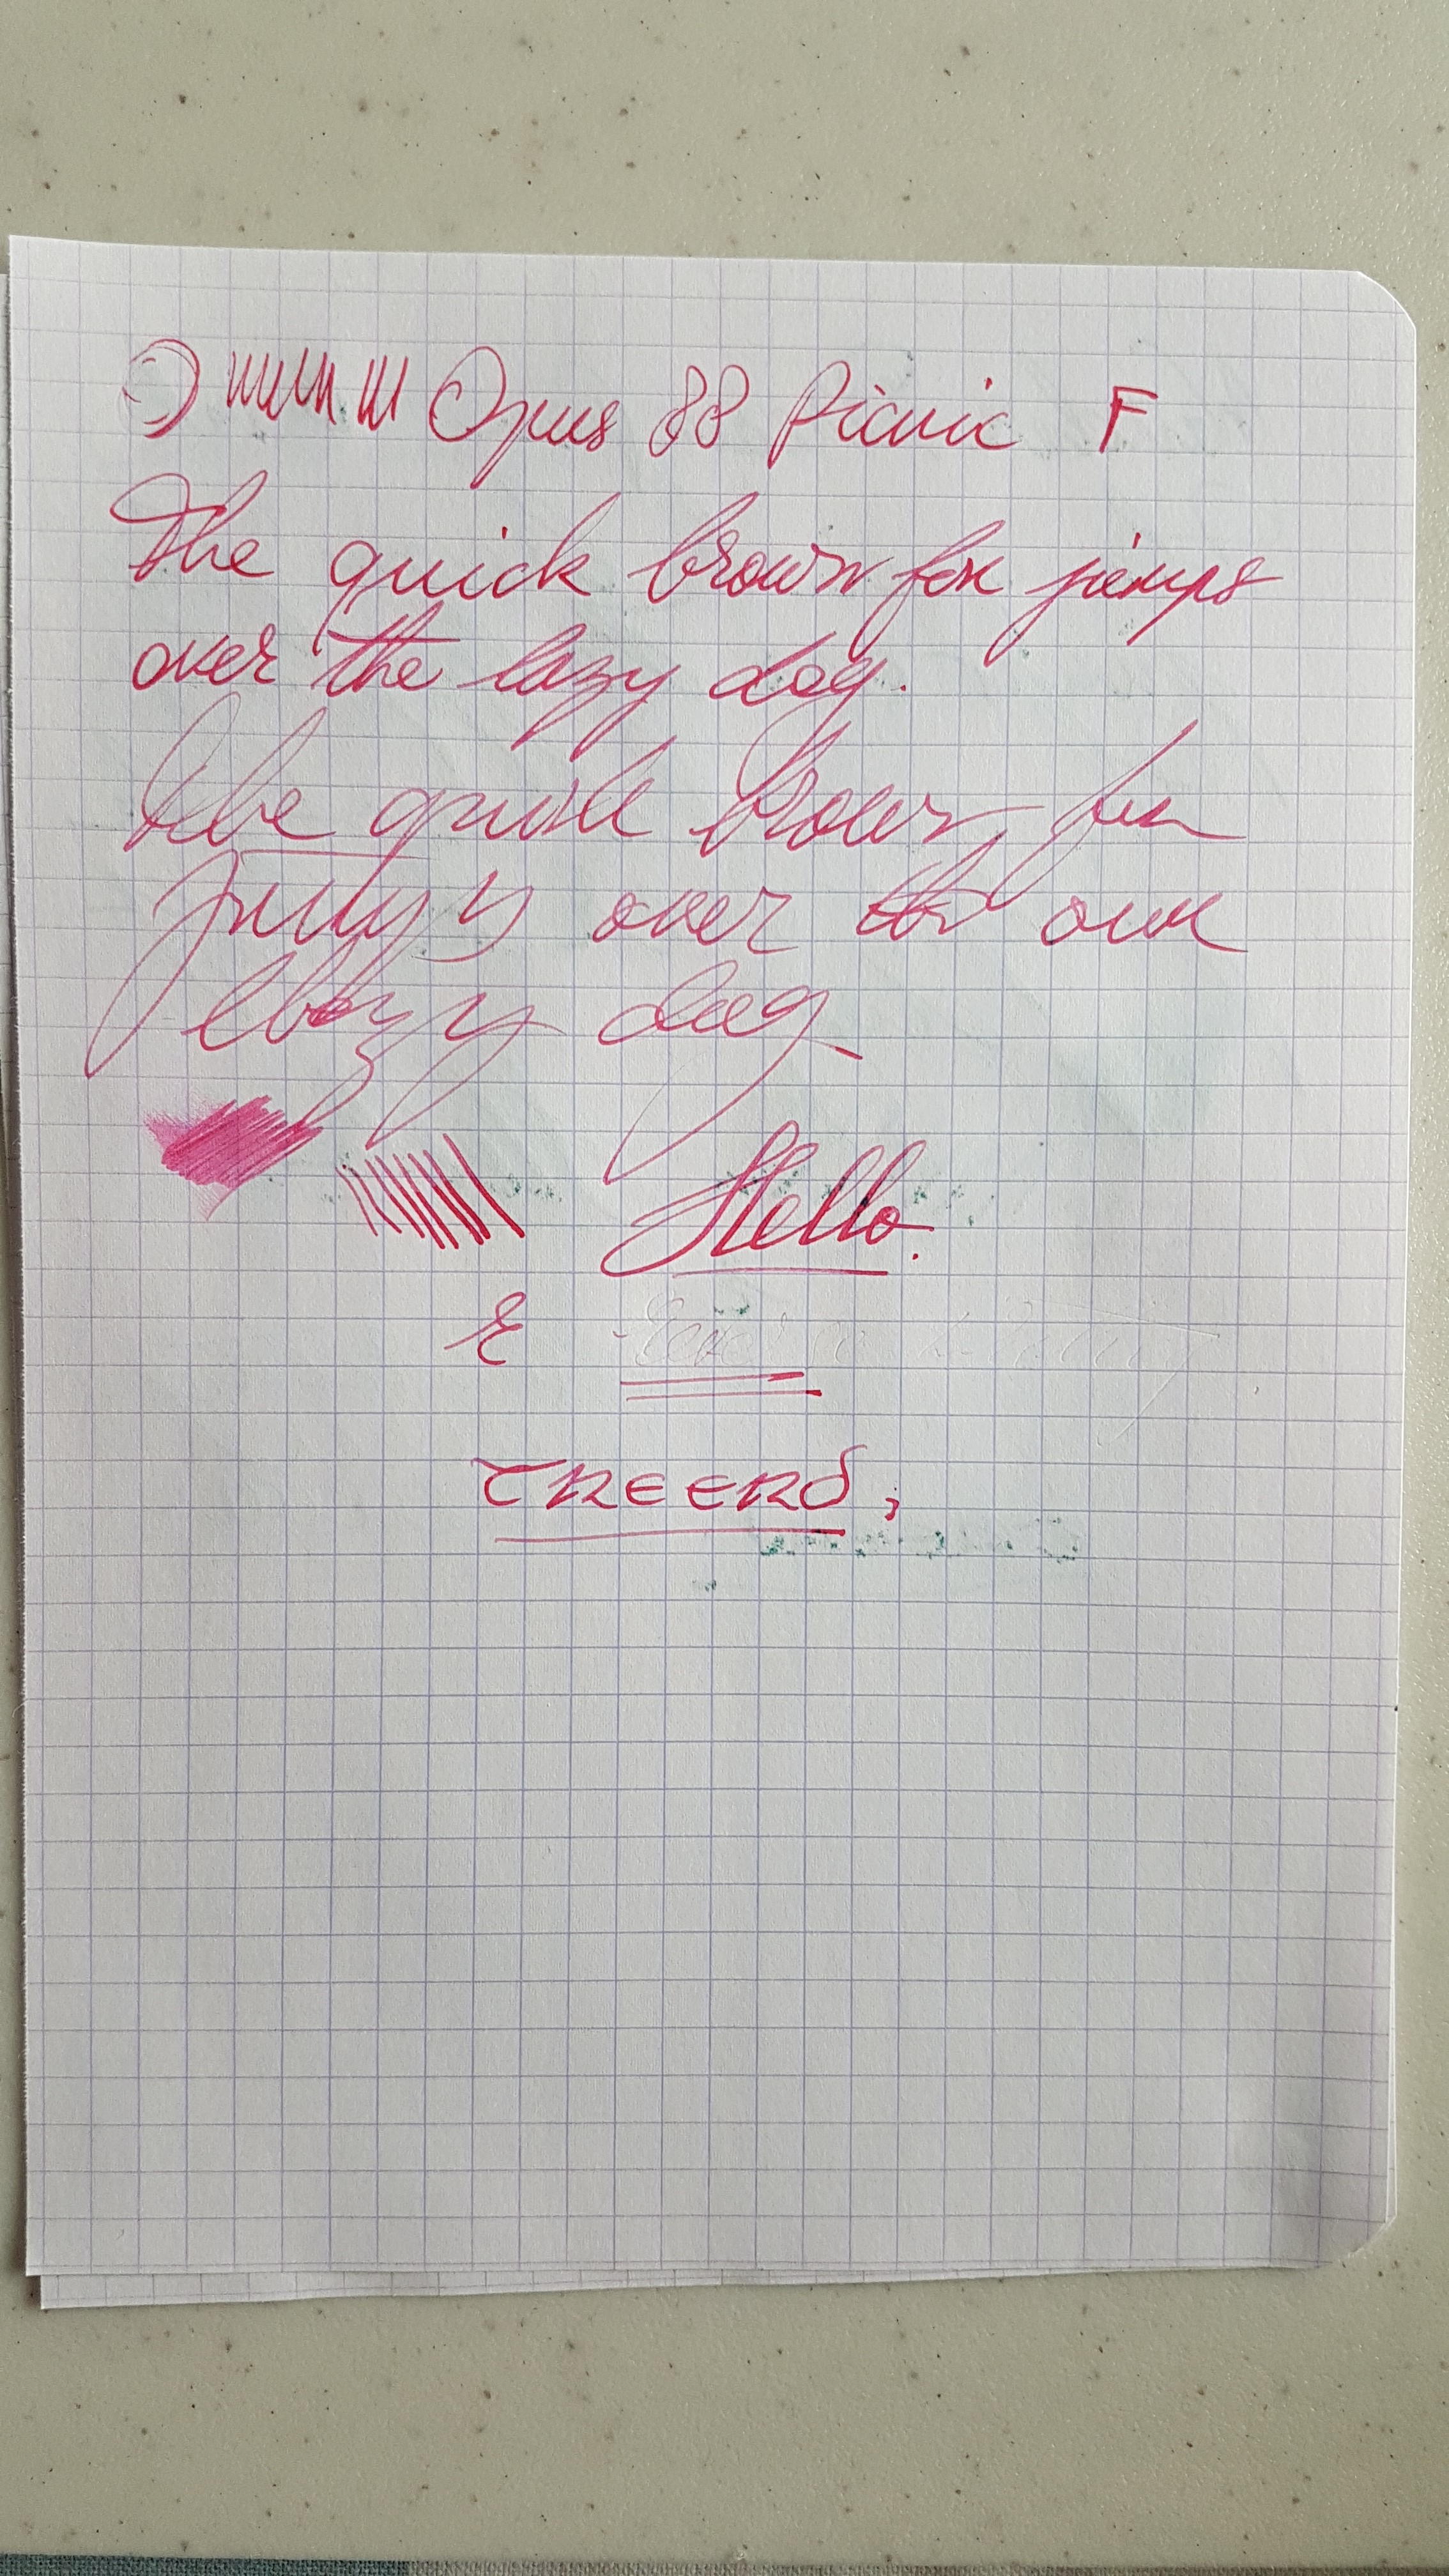 Opus 88 Picnic F
The quick brown fox jumps
over the lazy dog.
The quick brown fox
over
lazy dog
Hello.
E